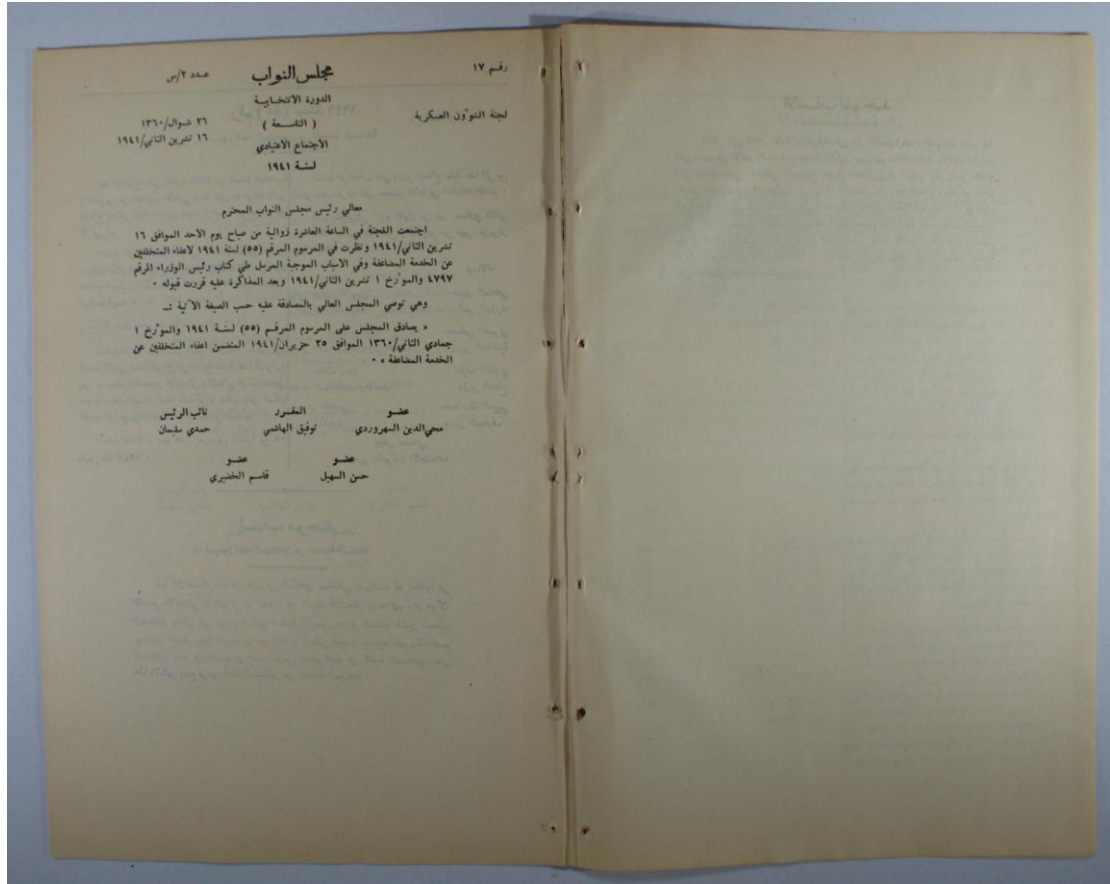 رقم ١٧
مجلس النواب
عدد ٢/س
الدورة الانتخابية
لجنة الشؤون العسكرية
( التاسعة )
٢٦ شوال/١٣٦٠
١٦ تشرين الثاني/١٩٤١
الاجتماع الاعتيادي
لسنة ١٩٤١
معالي رئيس مجلس النواب المحترم
اجتمعت اللجنة في الساعة العاشرة زوالية من صباح يوم الاحد الموافق ١٦
تشرين الثاني/١٩٤١ ونظرت في المرسوم المرقم (٥٥) لسنة ١٩٤١ لاعفاء المتخلفين
عن الخدمة المضاعفة وفي الاسباب الموجبة المرسل طي كتاب رئيس الوزراء المرقم
٤٧٩٧ والمؤرخ ١ تشرين الثاني/١٩٤١ وبعد المذاكرة عليه قررت قبوله ٠
وهي توصي المجلس العالي بالمصادقة عليه حسب الصيغة الآتية :ـ
« يصادق المجلس على المرسوم المرقم (٥٥) لسنة ١٩٤١ والمؤرخ ١
جمادي الثاني/١٣٦٠ الموافق ٢٥ حزيران/١٩٤١ المتضمن اعفاء المتخلفين عن
الخدمة المضاعفة » ٠
عضو المقرر نائب الرئيس
محي الدين السهروردي توفيق الهاشمي حمدي سليمان
عضو عضو
حسن السهيل قاسم الخضيري